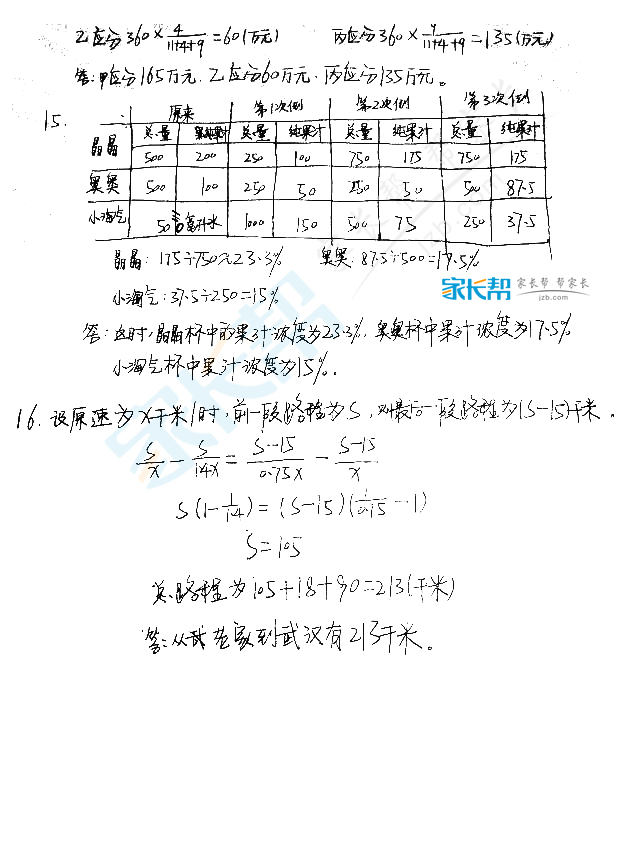 乙应分360×4/(11+4+9)=60(万元) 丙应分360×9/(11+4+9)=135(万元)
答:甲应分165万元.乙应分60万元.丙应分135万元。
15.
原来 第1次倒 第2次倒 第3次倒
总量 纯果汁 总量 纯果汁 总量 纯果汁 总量 纯果汁
晶晶 500 200 250 100 750 175 750 175
奥奥 500 100 250 50 250 50 500 87.5
小淘气 500毫升水 1000 150 500 75 250 37.5
晶晶:175÷750≈23.3% 奥奥:87.5÷500=17.5%
小淘气:37.5÷250=15%
家长帮 家长帮 帮家长
jzb.com
答:此时,晶晶杯中的果汁浓度为23.3%,奥奥杯中果汁浓度为17.5%
小淘气杯中果汁浓度为15%.
16.设原速为x千米/时,前一段路程为S,则最后一段路程为(S-15)千米.
S/x - S/1.4x = (S-15)/0.75x - (S-15)/x
S(1-1/1.4)=(S-15)(1/0.75-1)
S=105
总路程为105+18+90=213(千米)
答:从我爸家到武汉有213千米。